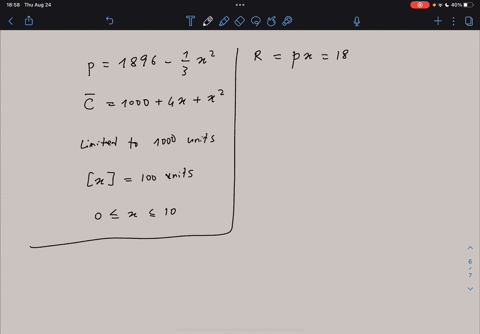 18:58 Thu Aug 24
40%
P = 1896 - 1/3 x²
C̅ = 1000 + 4x + x²
Limited to 1000 units
[x] = 100 units
0 ≤ x ≤ 10
R = px = 18
6
/
7